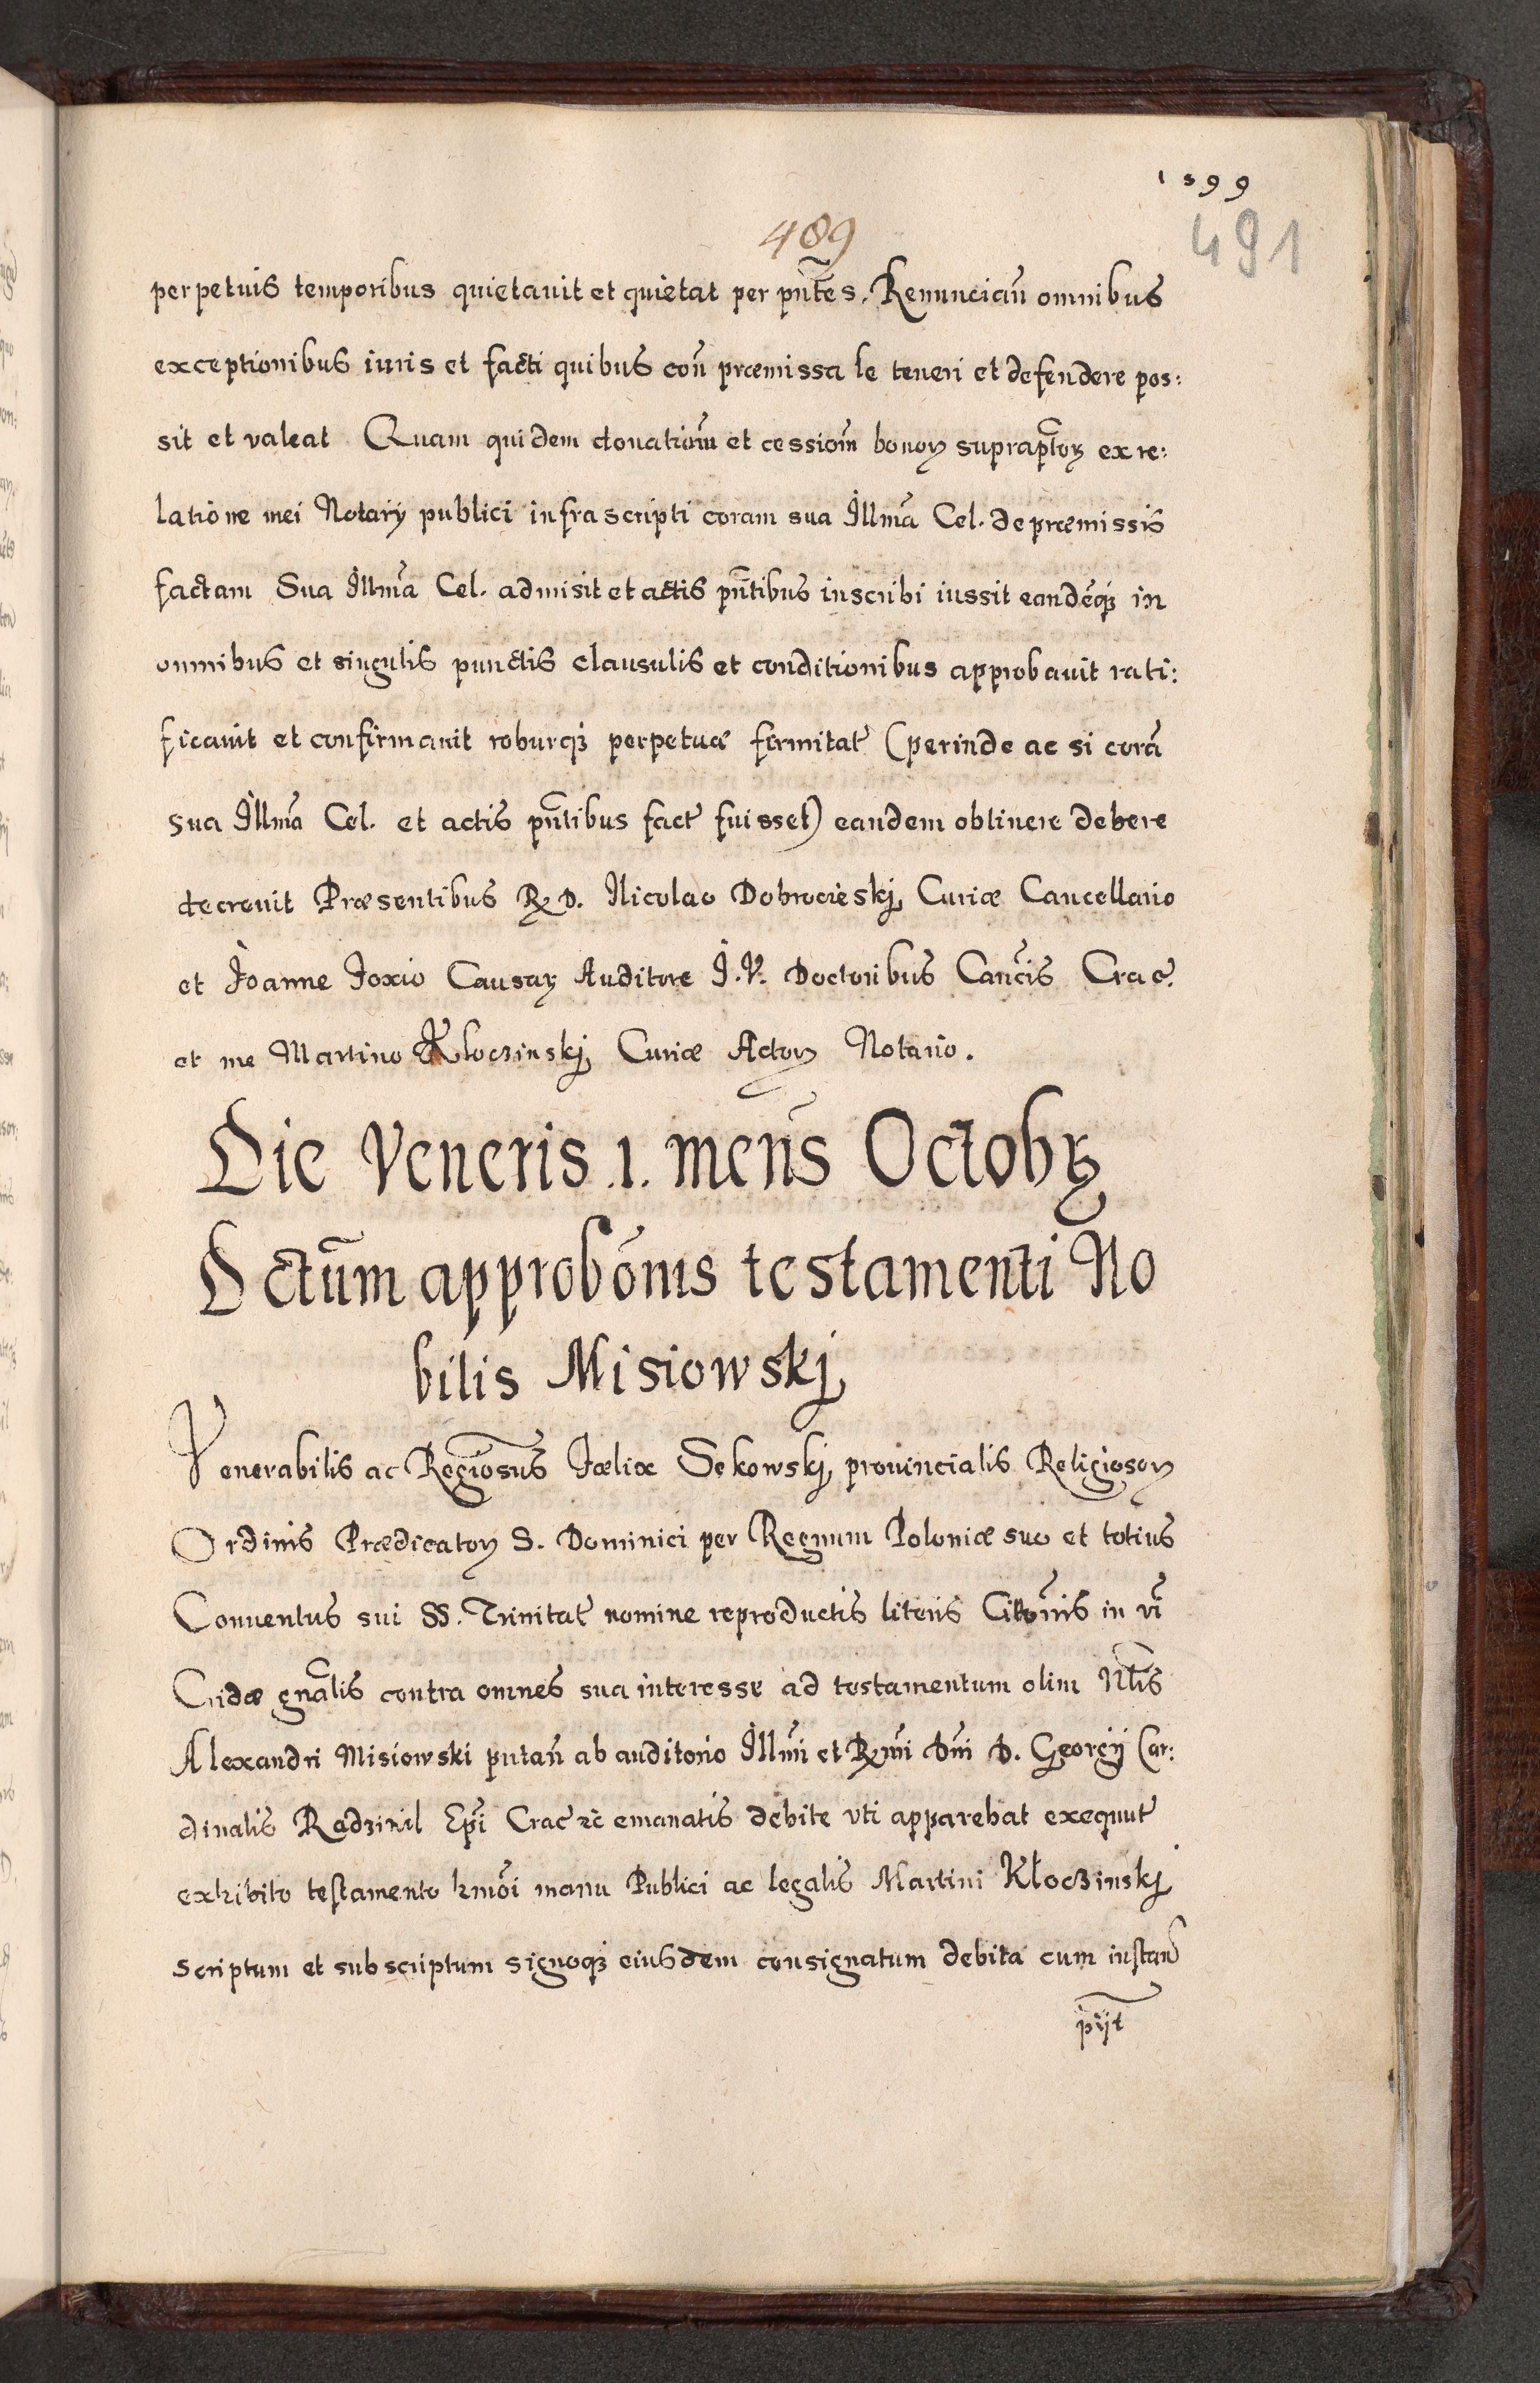 1599
489
491
perpetuis temporibus quietauit et quietat per pñtes. Renunciañ omnibus
exceptionibus iuris et facti quibus coñ præmissa se tueri et defendere pos:
sit et valeat Quam quidem donationẽm et cessionẽm bonoꝝ supraptoꝝ ex re:
latione mei Notarÿ publici infrascripti coram sua Illmã Cel. de præmissis
factam Sua Illmã Cel. admisit et actis pñtibus inscribi iussit eandẽqꝫ in
omnibus et singulis punctis clausulis et conditionibus approbauit rati:
ficauit et confirmauit roburqꝫ perpetuæ firmitat̃ (perinde ac si corã
sua Illmã Cel. et actis pñtibus fact̃ fuisset) eandem obtinere debere
decreuit Præsentibus R. D. Nicolao Dobrocieskj Curiæ Cancellario
et Ioanne Foxio Causaꝝ Auditore I. V. Doctoribus Cancis Crac̃
et me Martino Kloczinskj Curiæ Actoꝝ Notario.
Die Veneris .1. mens̃ Octobꝝ
Actũm approbõnis testamenti No
bilis Misiowskj
Venerabilis ac Regiosus̃ Fælix Sekowskj prouincialis Religiosoꝝ
Ordinis Prædicatoꝝ S. Dominici per Regnum Poloniæ suo et totius
Conuentus sui SS. Trinitat̃ nomine reproductis literis Citõnis in vĩ
Cridæ gñalis contra omnes sua interesse ad testamentum olim Nblĩs
Alexandri Misiowski putañ ab auditorio Illmĩ et Rmĩ Dñi D. Georgÿ Car:
dinalis Radziuil Epĩ Crac̃ ꝛc̃ emanatis debite vti apparebat exequut̃
exhibito testamento hmõi manu Publici ac legalis Martini Kłoczinskj
scriptum et subscriptum signoqꝫ eiusdem consignatum debita cum instañ
pĩjt